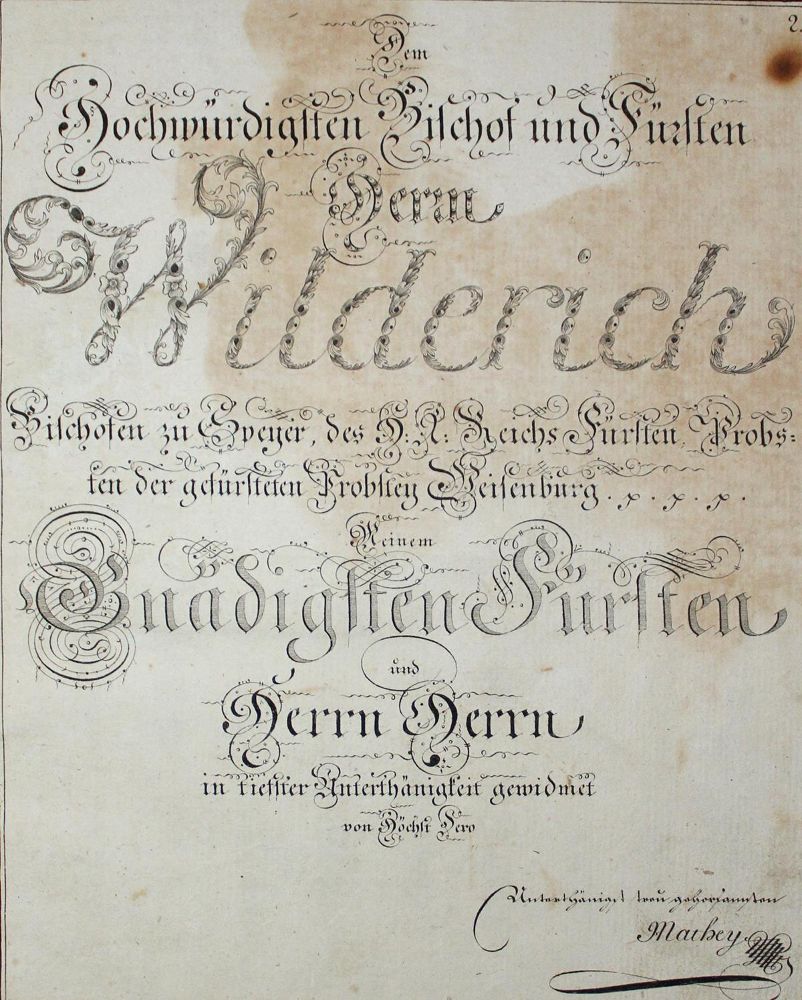 2.
Dem
Hochwürdigsten Bischof und Fürsten
Herrn
Wilderich
Bischofen zu Speyer, des H. R. Reichs Fürsten, Probs=
ten der gefürsteten Probstey Weisenburg . p . p . p .
Meinem
Gnädigsten Fürsten
und
Herrn Herrn
in tiefster Unterthänigkeit gewidmet
von Höchst Dero
Unterthänigst treu gehorsamsten
Mathey